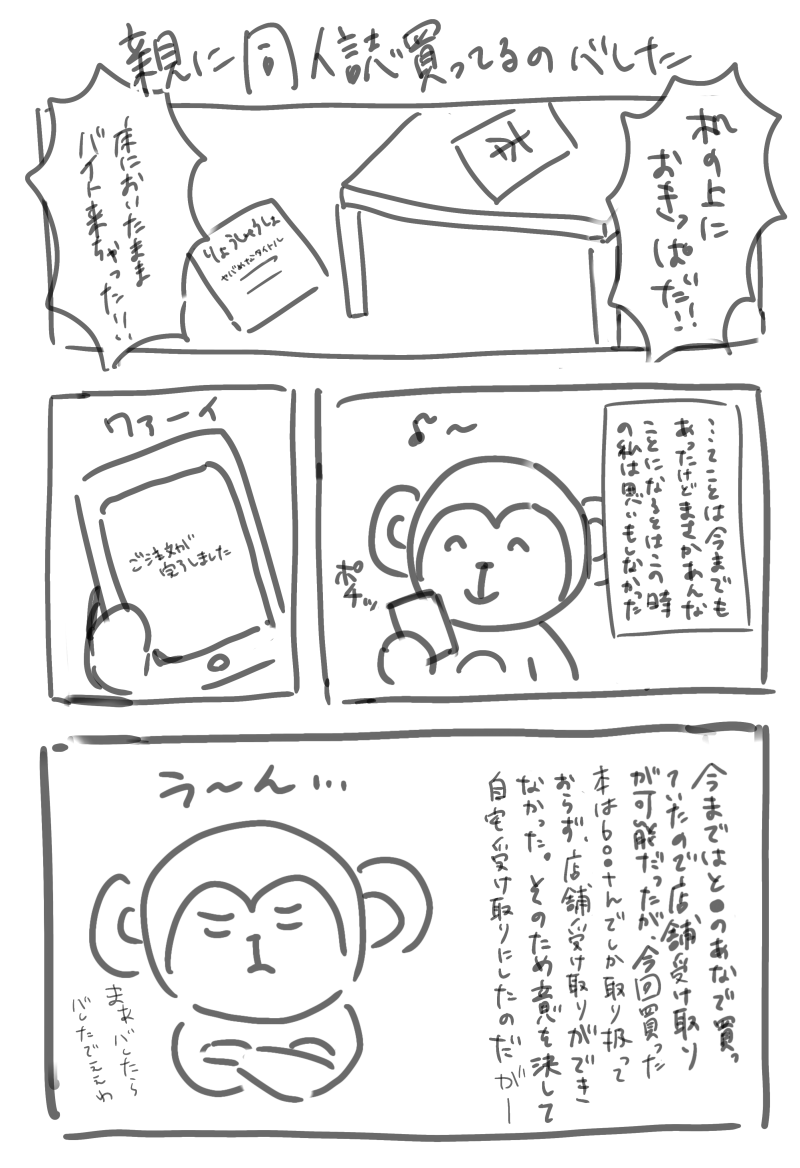 親に同人誌買ってるのバレした
机の上に
おきっぱだ!!
床においたまま
バイト来ちゃった!!!
りょうしゅうしょ
ヤバめなタイトル
…てことは今までも
あったけどまさかあんな
ことになるとはこの時
の私は思いもしなかった
♪〜
ポチッ
ワァーイ
ご注文が
完了しました
今まではと●のあなで買っ
ていたので店舗受け取り
が可能だったが、今回買った
本はboo●さんでしか取り扱って
おらず、店舗受け取りができ
なかった。そのため意を決して
自宅受け取りにしたのだがー
う〜ん…
まぁバレたら
バレたでええわ